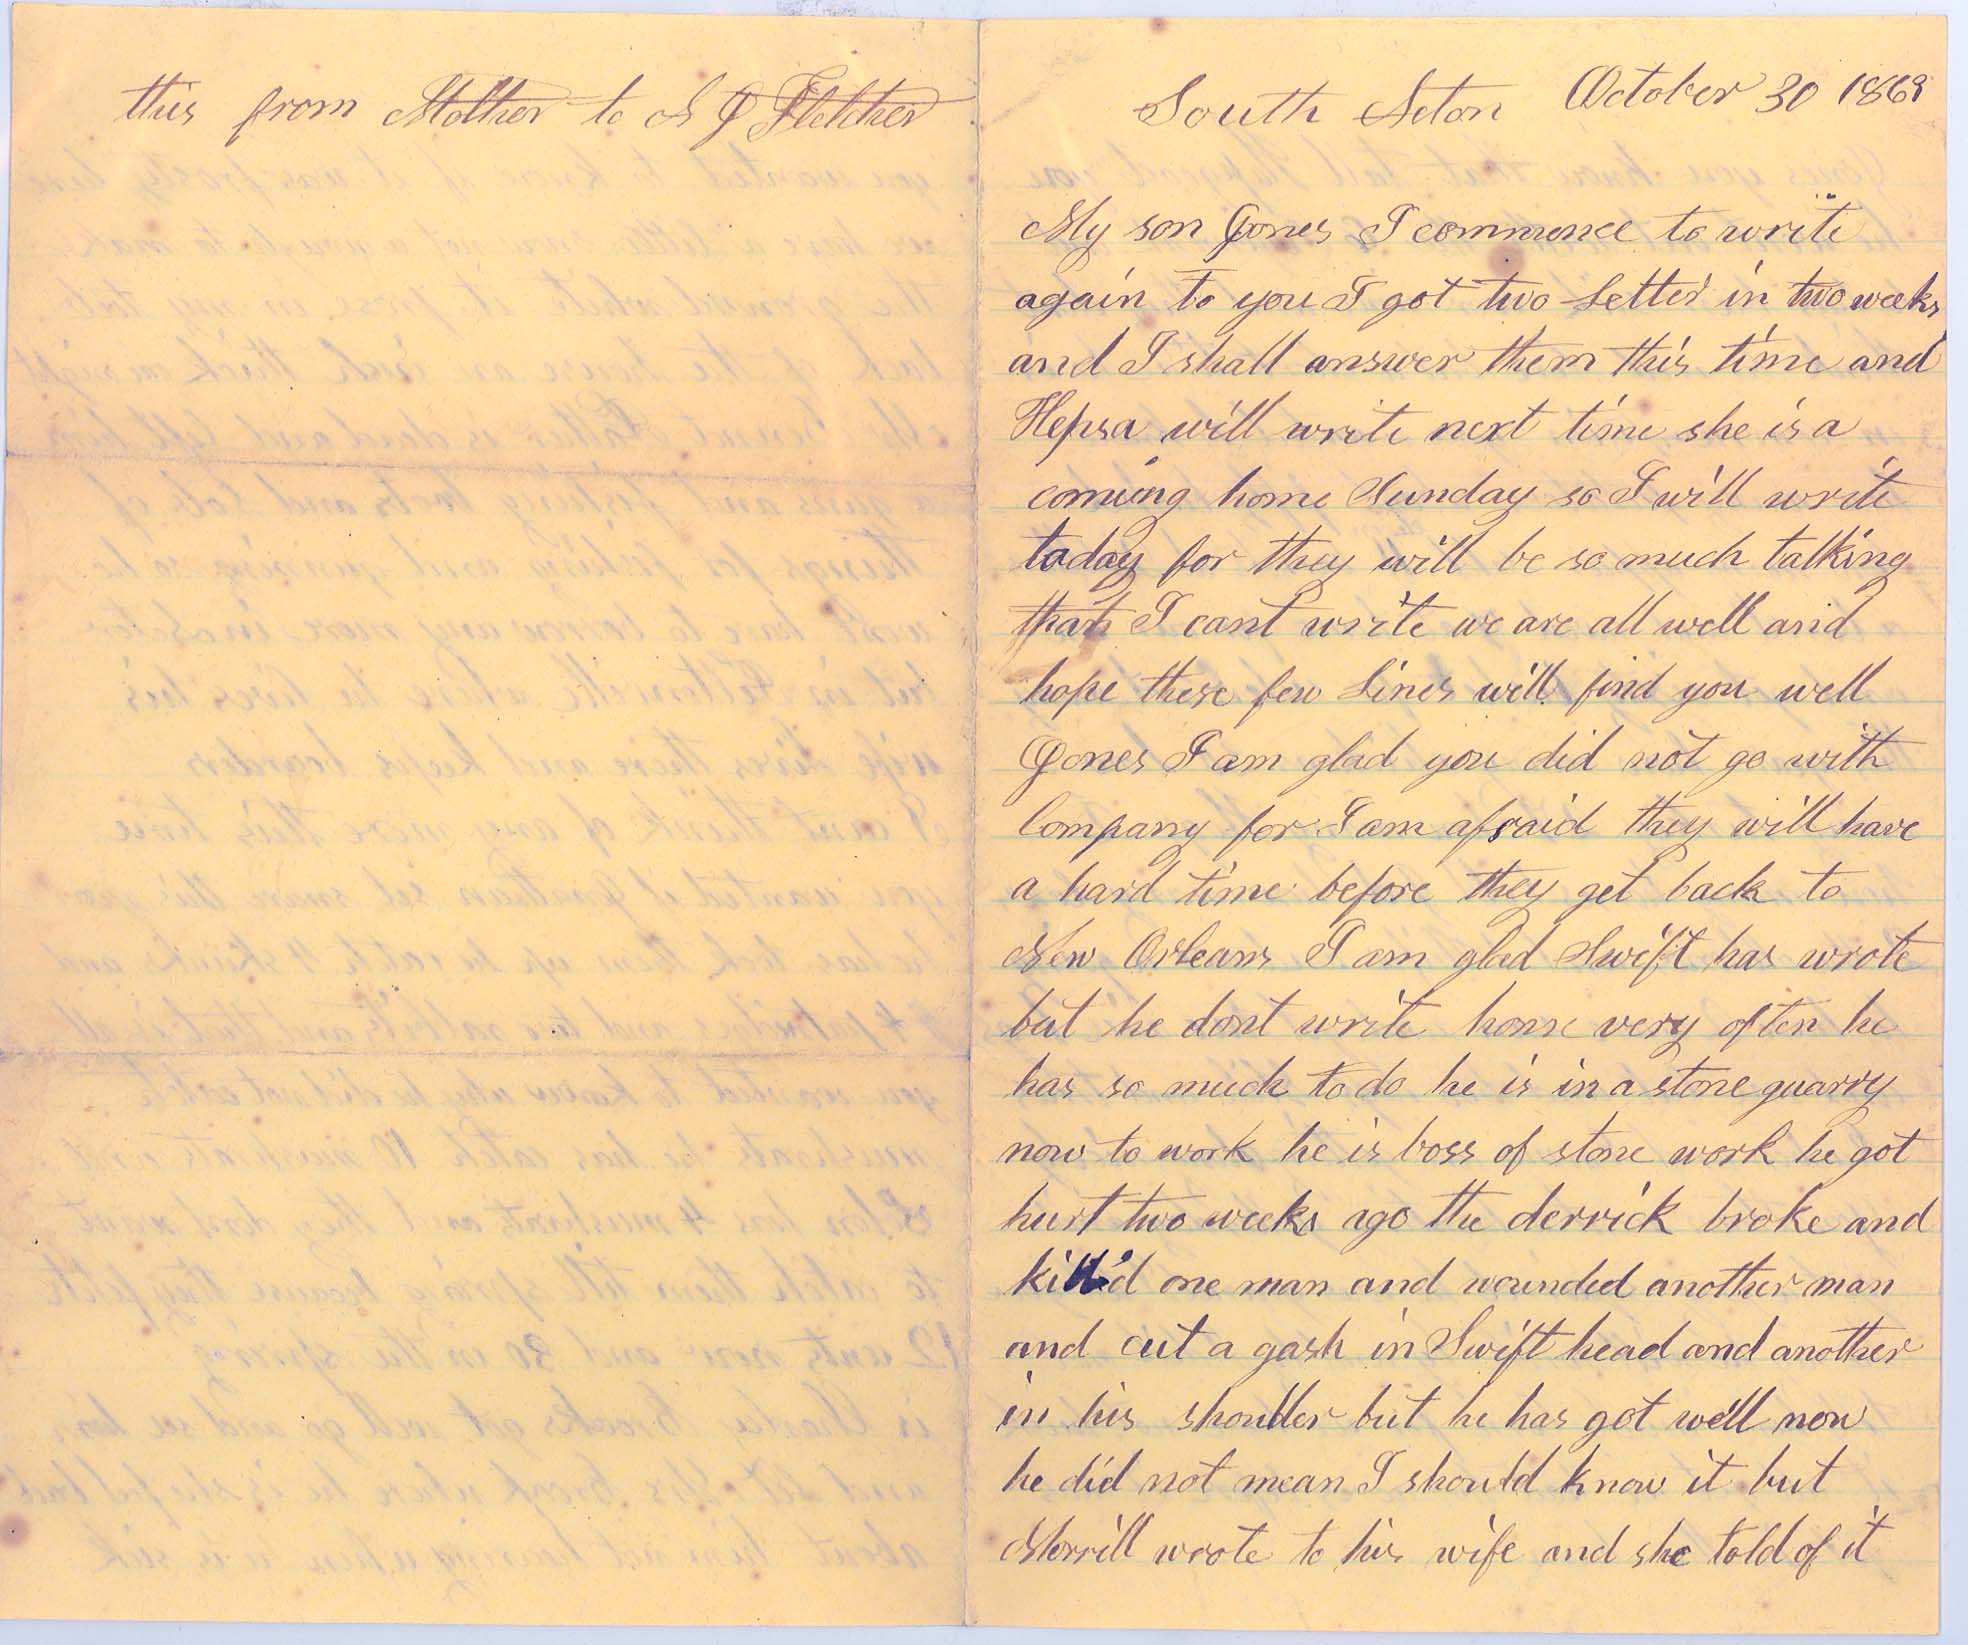 this from Mother to S J Fletcher
South Acton October 30 1863
My son Jones I commence to write
again to you I got two Letter in two weeks
and I shall answer them this time and
Hepsa will write next time she is a
coming home Sunday so I will write
today for they will be so much talking
that I cant write we are all well and
hope these few Lines will find you well
Jones I am glad you did not go with
Company for I am afraid they will have
a hard time before they get back to
New Orleans I am glad Swift has wrote
but he dont write home very often he
has so much to do he is in a stone quarry
now to work he is boss of stone work he got
hurt two weeks ago the derrick broke and
kill'd one man and wounded another man
and cut a gash in Swift head and another
in his shoulder but he has got well now
he did not mean I should know it but
Morrill wrote to his wife and she told of it